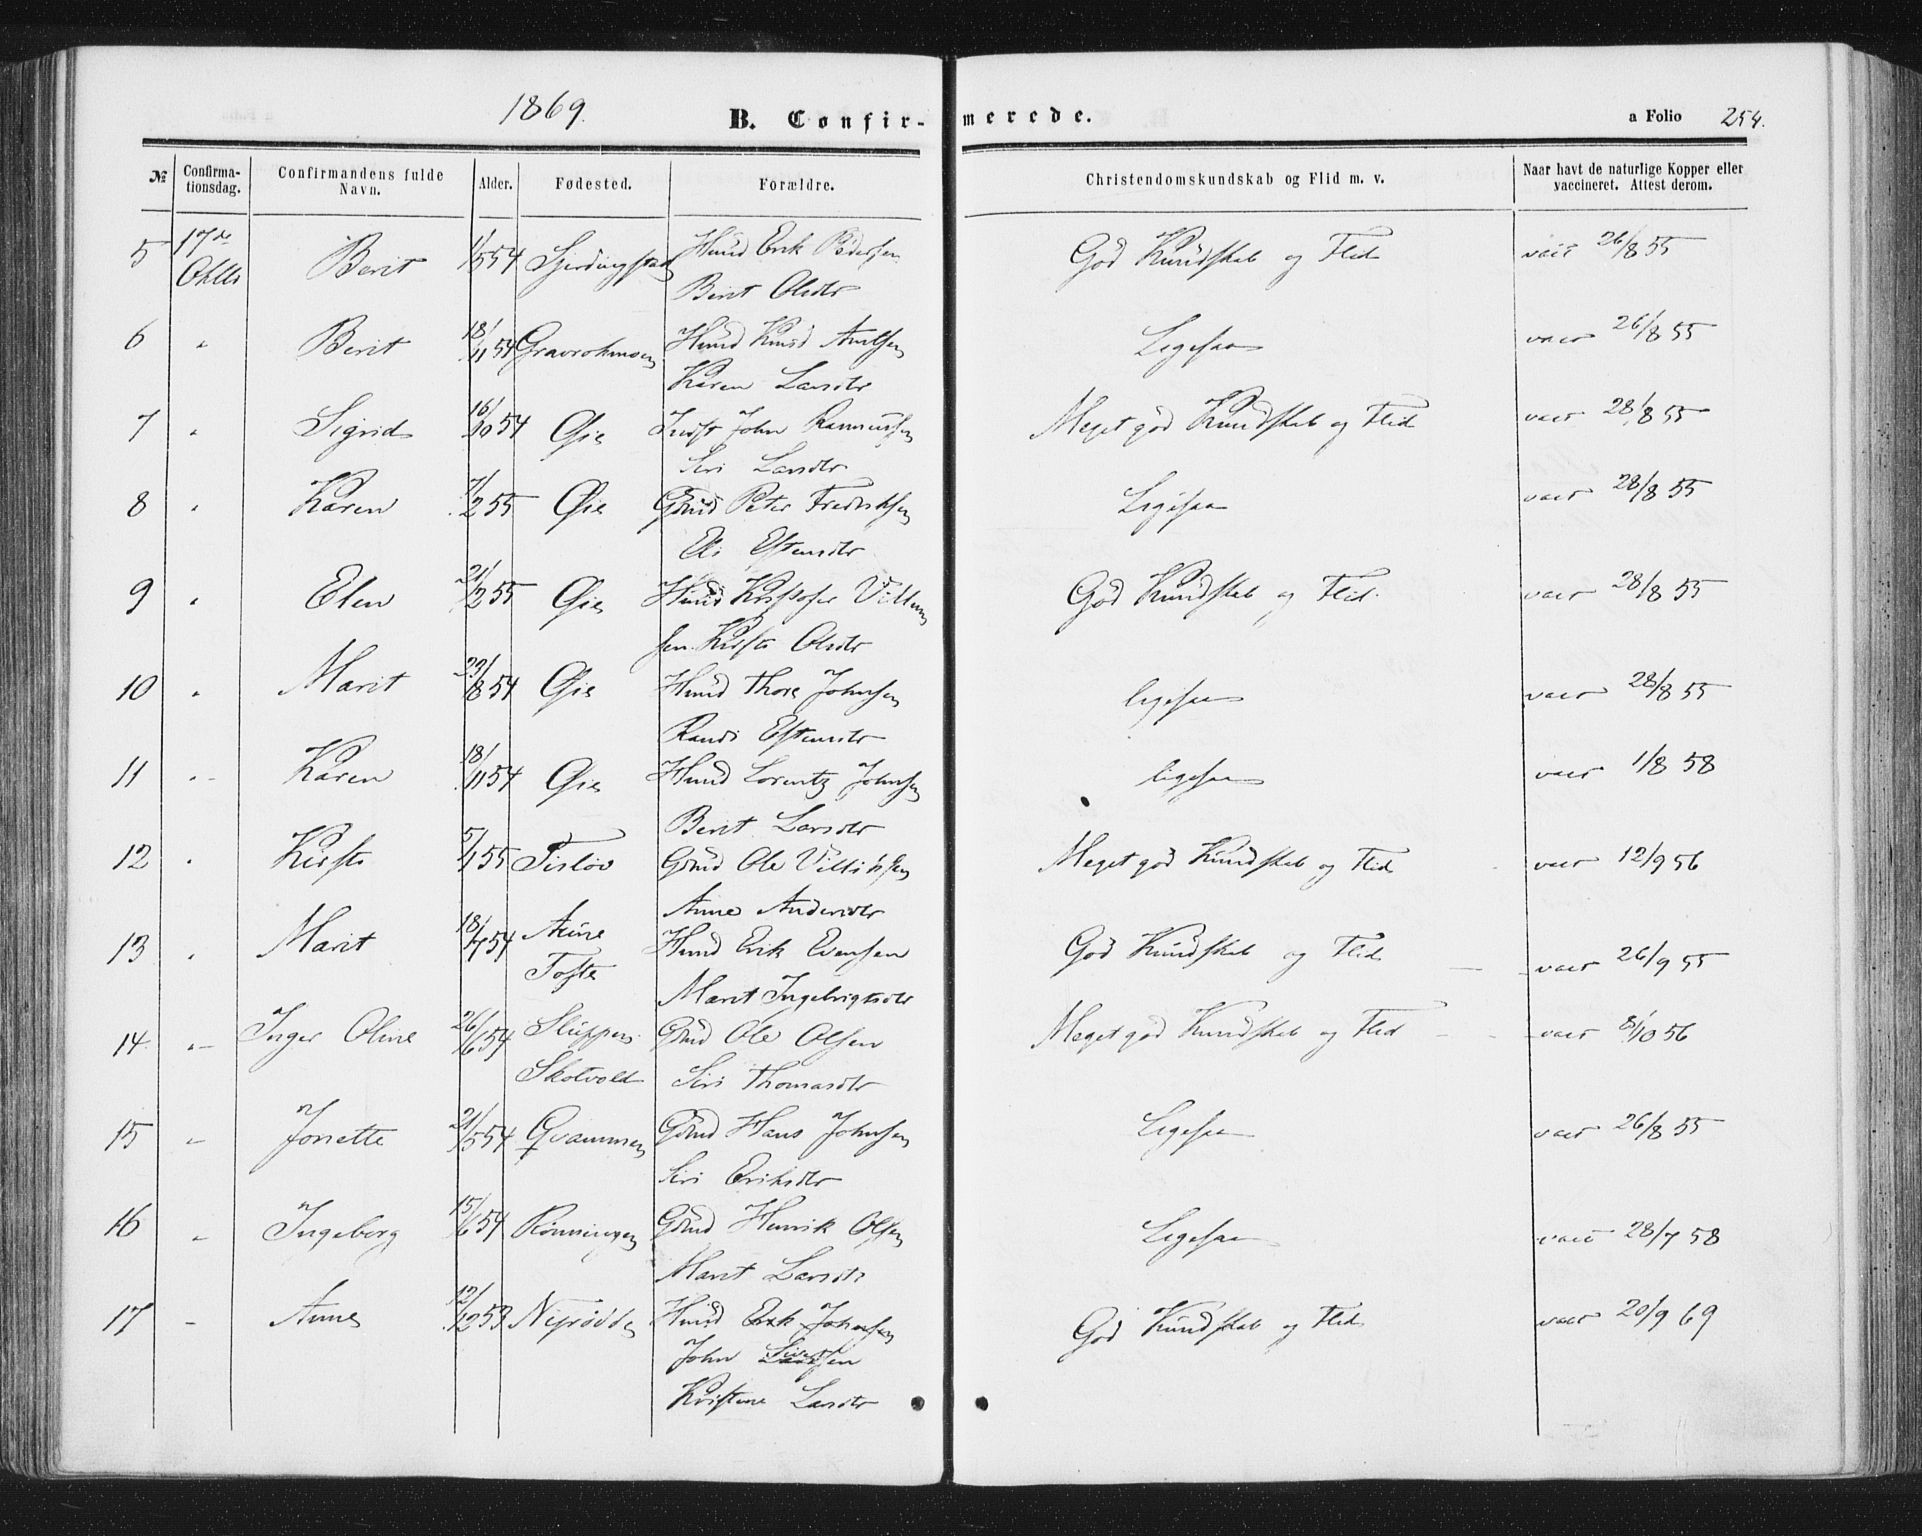 1869.
B. Confirmerede.
a Folio 254.
№ Confirmationsdag. Confirmandens fulde Navn. Alder. Fødested. Forældre. Christendomskundskab og Flid m. v. Naar havt de naturlige Kopper eller vaccineret. Attest derom.
5 17de Berit 1/5 54 Hmd Erik Pedersen God Kundskab og Flid vacc 26/8 55
Berit Olsdtr
6 " Berit 18/11 54 Hmd Knud Ligesaa vacc 26/8 55
Karen Larsdtr
7 " Sigrid 16/10 54 Øie Indst John Rasmussen Meget god Kundskab og Flid vacc 28/8 55
Siri Larsdtr
8 " Karen 7/2 55 Øie Gdmd Peter Fredriksen Ligesaa vacc 28/8 55
Eli Estensdtr
9 " Elen 21/2 55 Øie Hmd Villum God Kundskab og Flid. vacc 28/8 55
sen. Kirsti Olsdtr
10 " Marit 23/8 54 Øie Hmd Thore Johnsen ligesaa vacc 28/8 55
Randi Estensdtr
11 " Karen 18/11 54 Øie Hmd Lorentz Johnsen ligesaa vacc 1/8 58
Berit Larsdtr
12 " Kirsti 5/1 55 Gdmd Ole Meget god Kundskab og Flid vacc 12/9 56
Anne Andersdtr
13 " Marit 18/7 54 Aune Hmd Erik Evensen God Kundskab og Flid vacc 26/9 55
Tofte Marit Ingebrigtsdtr
14. " Inger Oline 26/6 54 Gmd Ole Olsen Meget god Kundskab og Flid vacc 8/10 56
Skotvold Siri Thomasdtr
15 " Jonette 21/5 54 Qvammen Gdmd Hans Johnsen Ligesaa vacc 26/8 55
Siri Eriksdtr
16 " Ingeborg 15/6 54 Rønningen Gdmd Henrik Olsen Ligesaa vacc 28/7 58
Marit Larsdtr
17 " Anne 12/12 53 Hmd Erik Johnsen God Kundskab og Flid vacc 20/9 69
John
Kristine Larsdtr